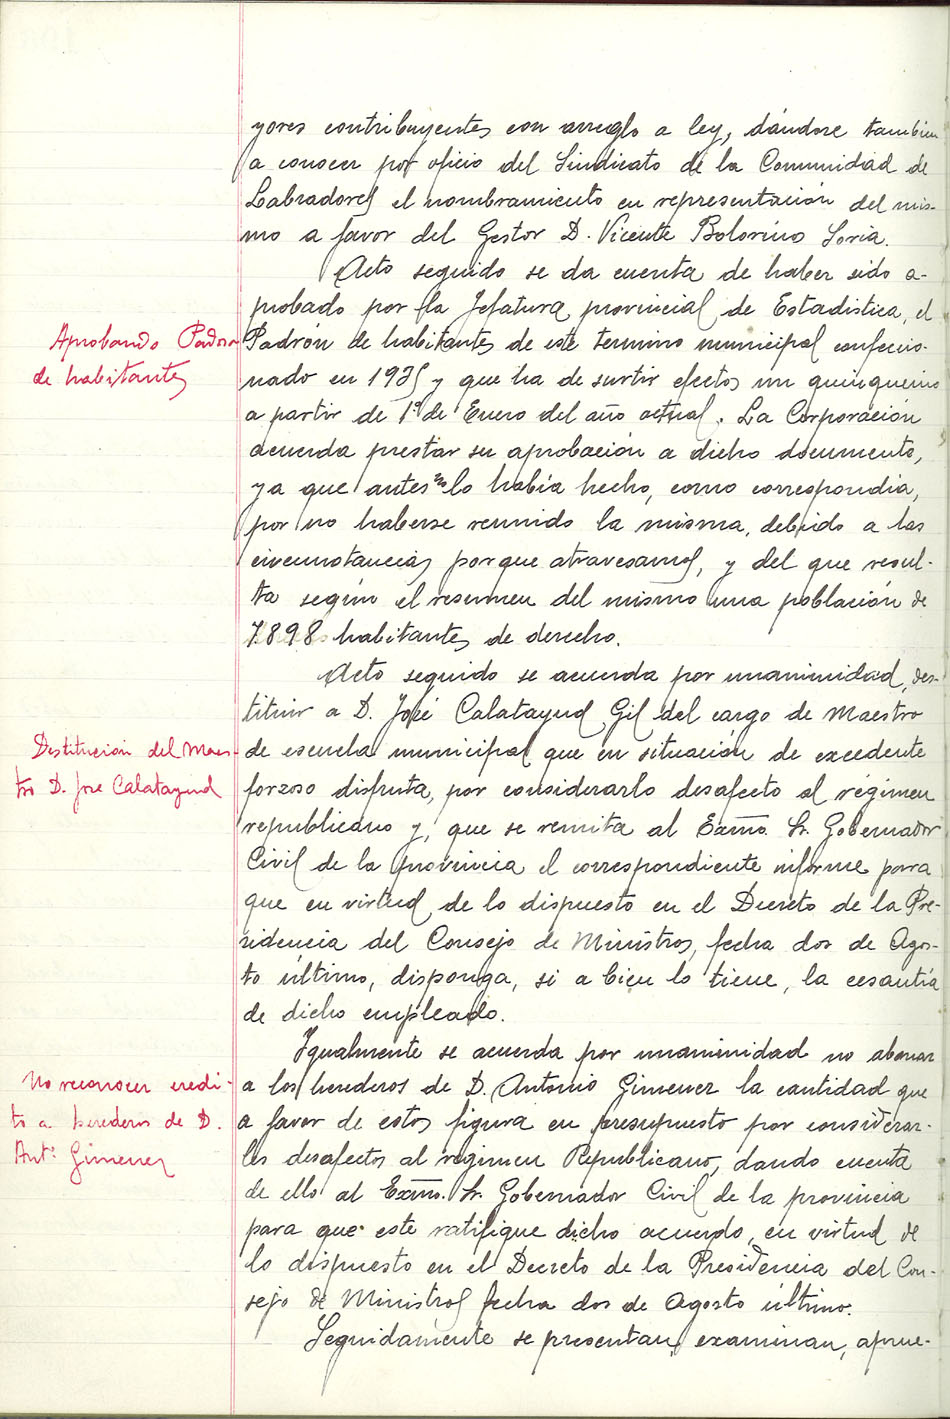 yores contribuyentes con arreglo a ley, dándose tambien
a conocer por oficio del Sindicato de la Comunidad de
Labradores el nombramiento en representación del mis-
mo a favor del Gestor D. Vicente Bolorino Soria.
Acto seguido se da cuenta de haber sido a-
probado por la Jefatura provincial de Estadistica, el
Aprobando Padron
Padrón de habitantes de este termino municipal confeccio-
de habitantes
nado en 1935 y que ha de surtir efectos un quinquenio
a partir de 1º de Enero del año actual. La Corporación
acuerda prestar su aprobación a dicho documento,
ya que antes no lo había hecho, como correspondia,
por no haberse reunido la misma, debido a las
circunstancias porque atravesamos, y del que resul-
ta según el resumen del mismo una población de
7.898 habitantes de derecho.
Acto seguido se acuerda por unanimidad, des-
tituir a D. José Calatayud Gil del cargo de Maestro
Destitución del Maes-
de escuela municipal que en situación de excedente
tro D. Jose Calatayud
forzoso disfruta, por considerarlo desafecto al régimen
republicano y, que se remita al Exmo. Sr. Gobernador
Civil de la provincia el correspondiente informe para
que en virtud de lo dispuesto en el Decreto de la Pre-
sidencia del Consejo de Ministros, fecha dos de Agos-
to último, disponga, si a bien lo tiene, la cesantía
de dicho empleado.
Igualmente se acuerda por unanimidad no abonar
No reconocer credi-
a los herederos de D. Antonio Gimenez la cantidad que
to a herederos de D.
a favor de estos figura en presupuesto por considerar-
Antº. Gimenez
les desafectos al régimen Republicano, dando cuenta
de ello al Exmo. Sr. Gobernador Civil de la provincia
para que este ratifique dicho acuerdo, en virtud de
lo dispuesto en el Decreto de la Presidencia del Con-
sejo de Ministros fecha dos de Agosto último.
Seguidamente se presentan, examinan, aprue-